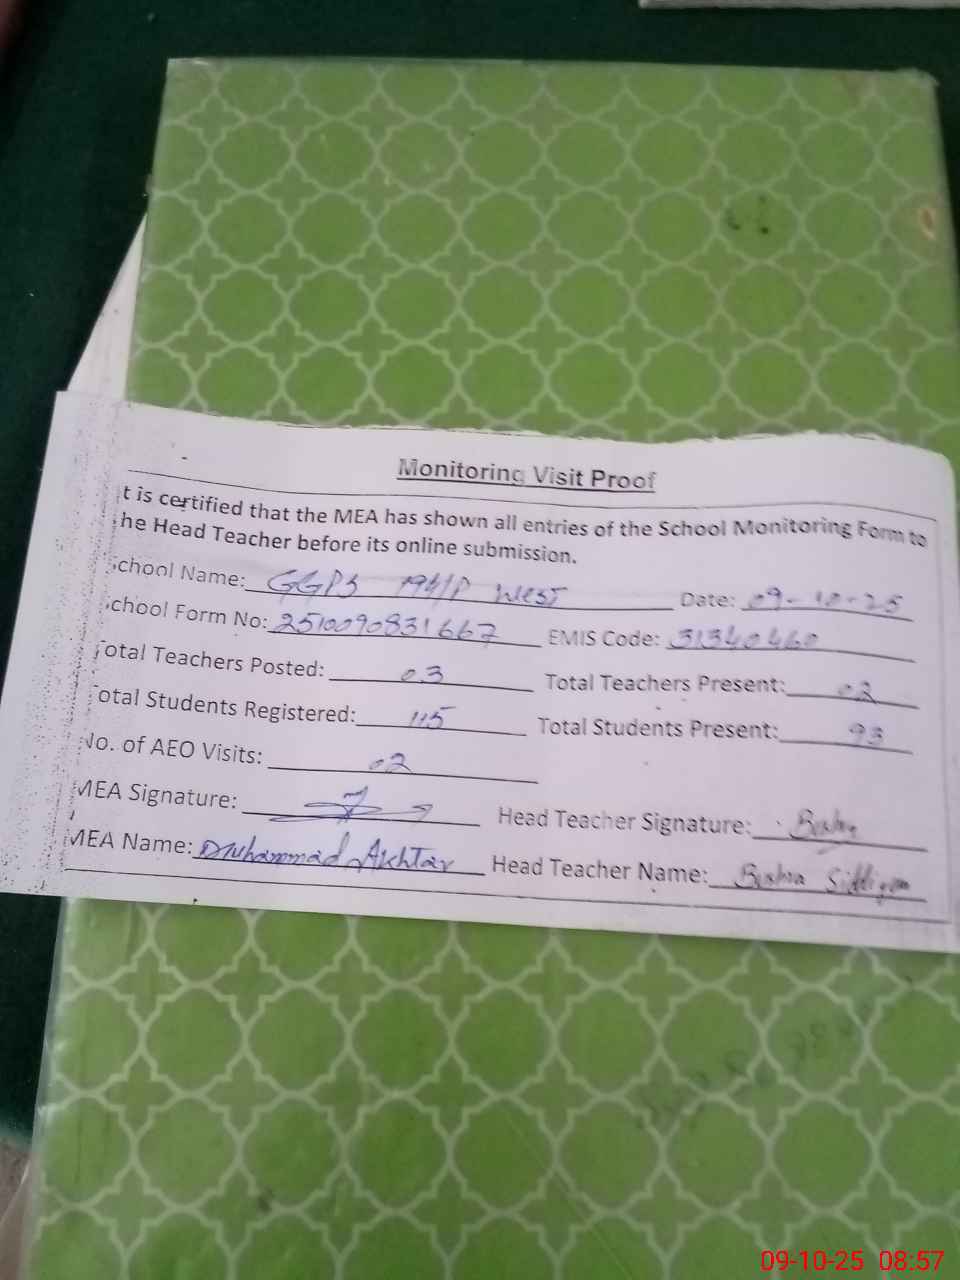 Monitoring Visit Proof
t is certified that the MEA has shown all entries of the School Monitoring Form to
he Head Teacher before its online submission.
chool Name: GGPS 194/P West Date: 09-10-25
chool Form No: 2510090831667 EMIS Code: 31340460
otal Teachers Posted: 03 Total Teachers Present: 02
otal Students Registered: 115 Total Students Present: 93
No. of AEO Visits: 02
MEA Signature: Head Teacher Signature: Bushra
MEA Name: Muhammad Akhtar Head Teacher Name: Bushra Siddiqa
09-10-25 08:57